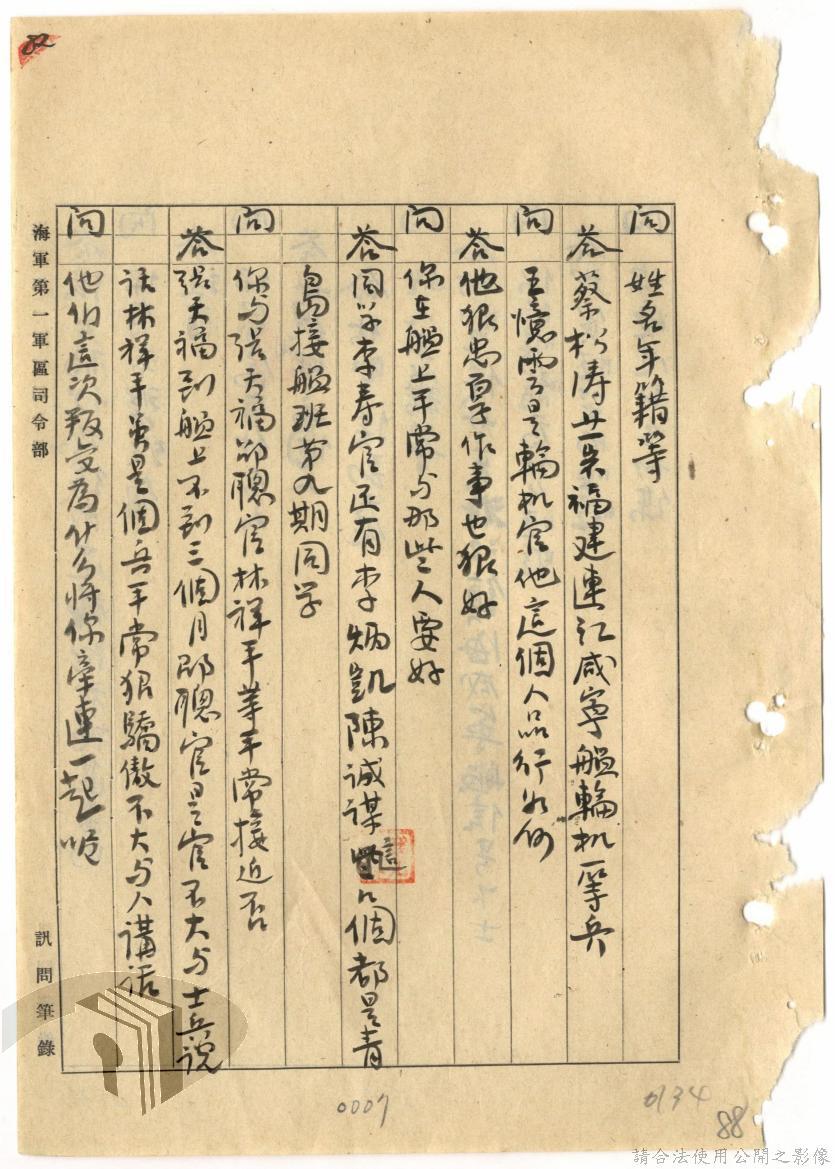 82
問 姓名年籍等
答 蔡松濤廿一歲福建連江咸寧艦輪机一等兵
問 王憶雲是輪机官他這個人品行如何
答 他狠忠厚作事也狠好
問 你在艦上平常与那些人要好
答 同学李寿官还有李炳凱陳誠謀這几個都是青
島接艦班第九期同学
問 你与張天福邵聰官林祥平等平常接近否
答 張天福到艦上不到三個月邵聰官是官不大与士兵說
話林祥平虽是個兵平常狠驕傲不大与人講話
問 他们這次叛变為什么将你牽連一起呢
海軍第一軍區司令部
訊問筆錄
0007
0134
88
請合法使用公開之影像